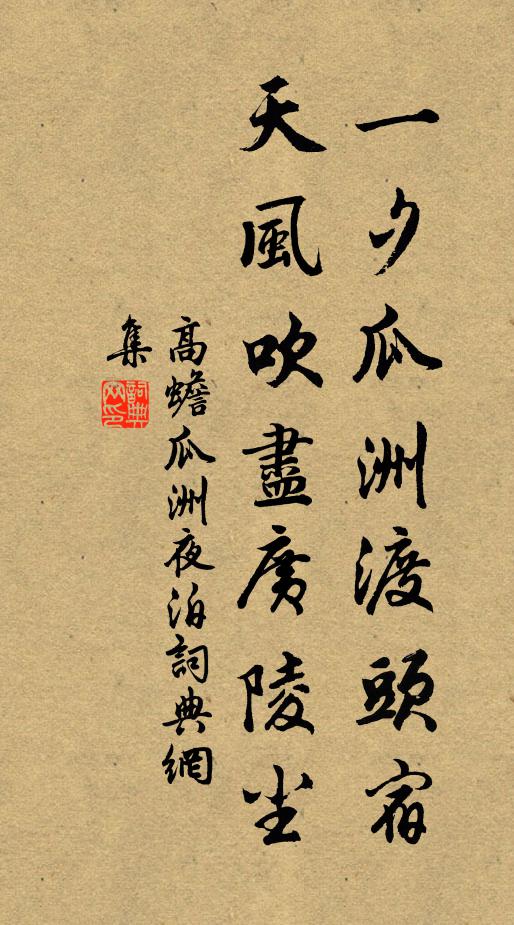 一夕瓜洲渡頭宿
天風吹盡廣陵塵
高蟾瓜洲夜泊詞典網
集
詞典
网印